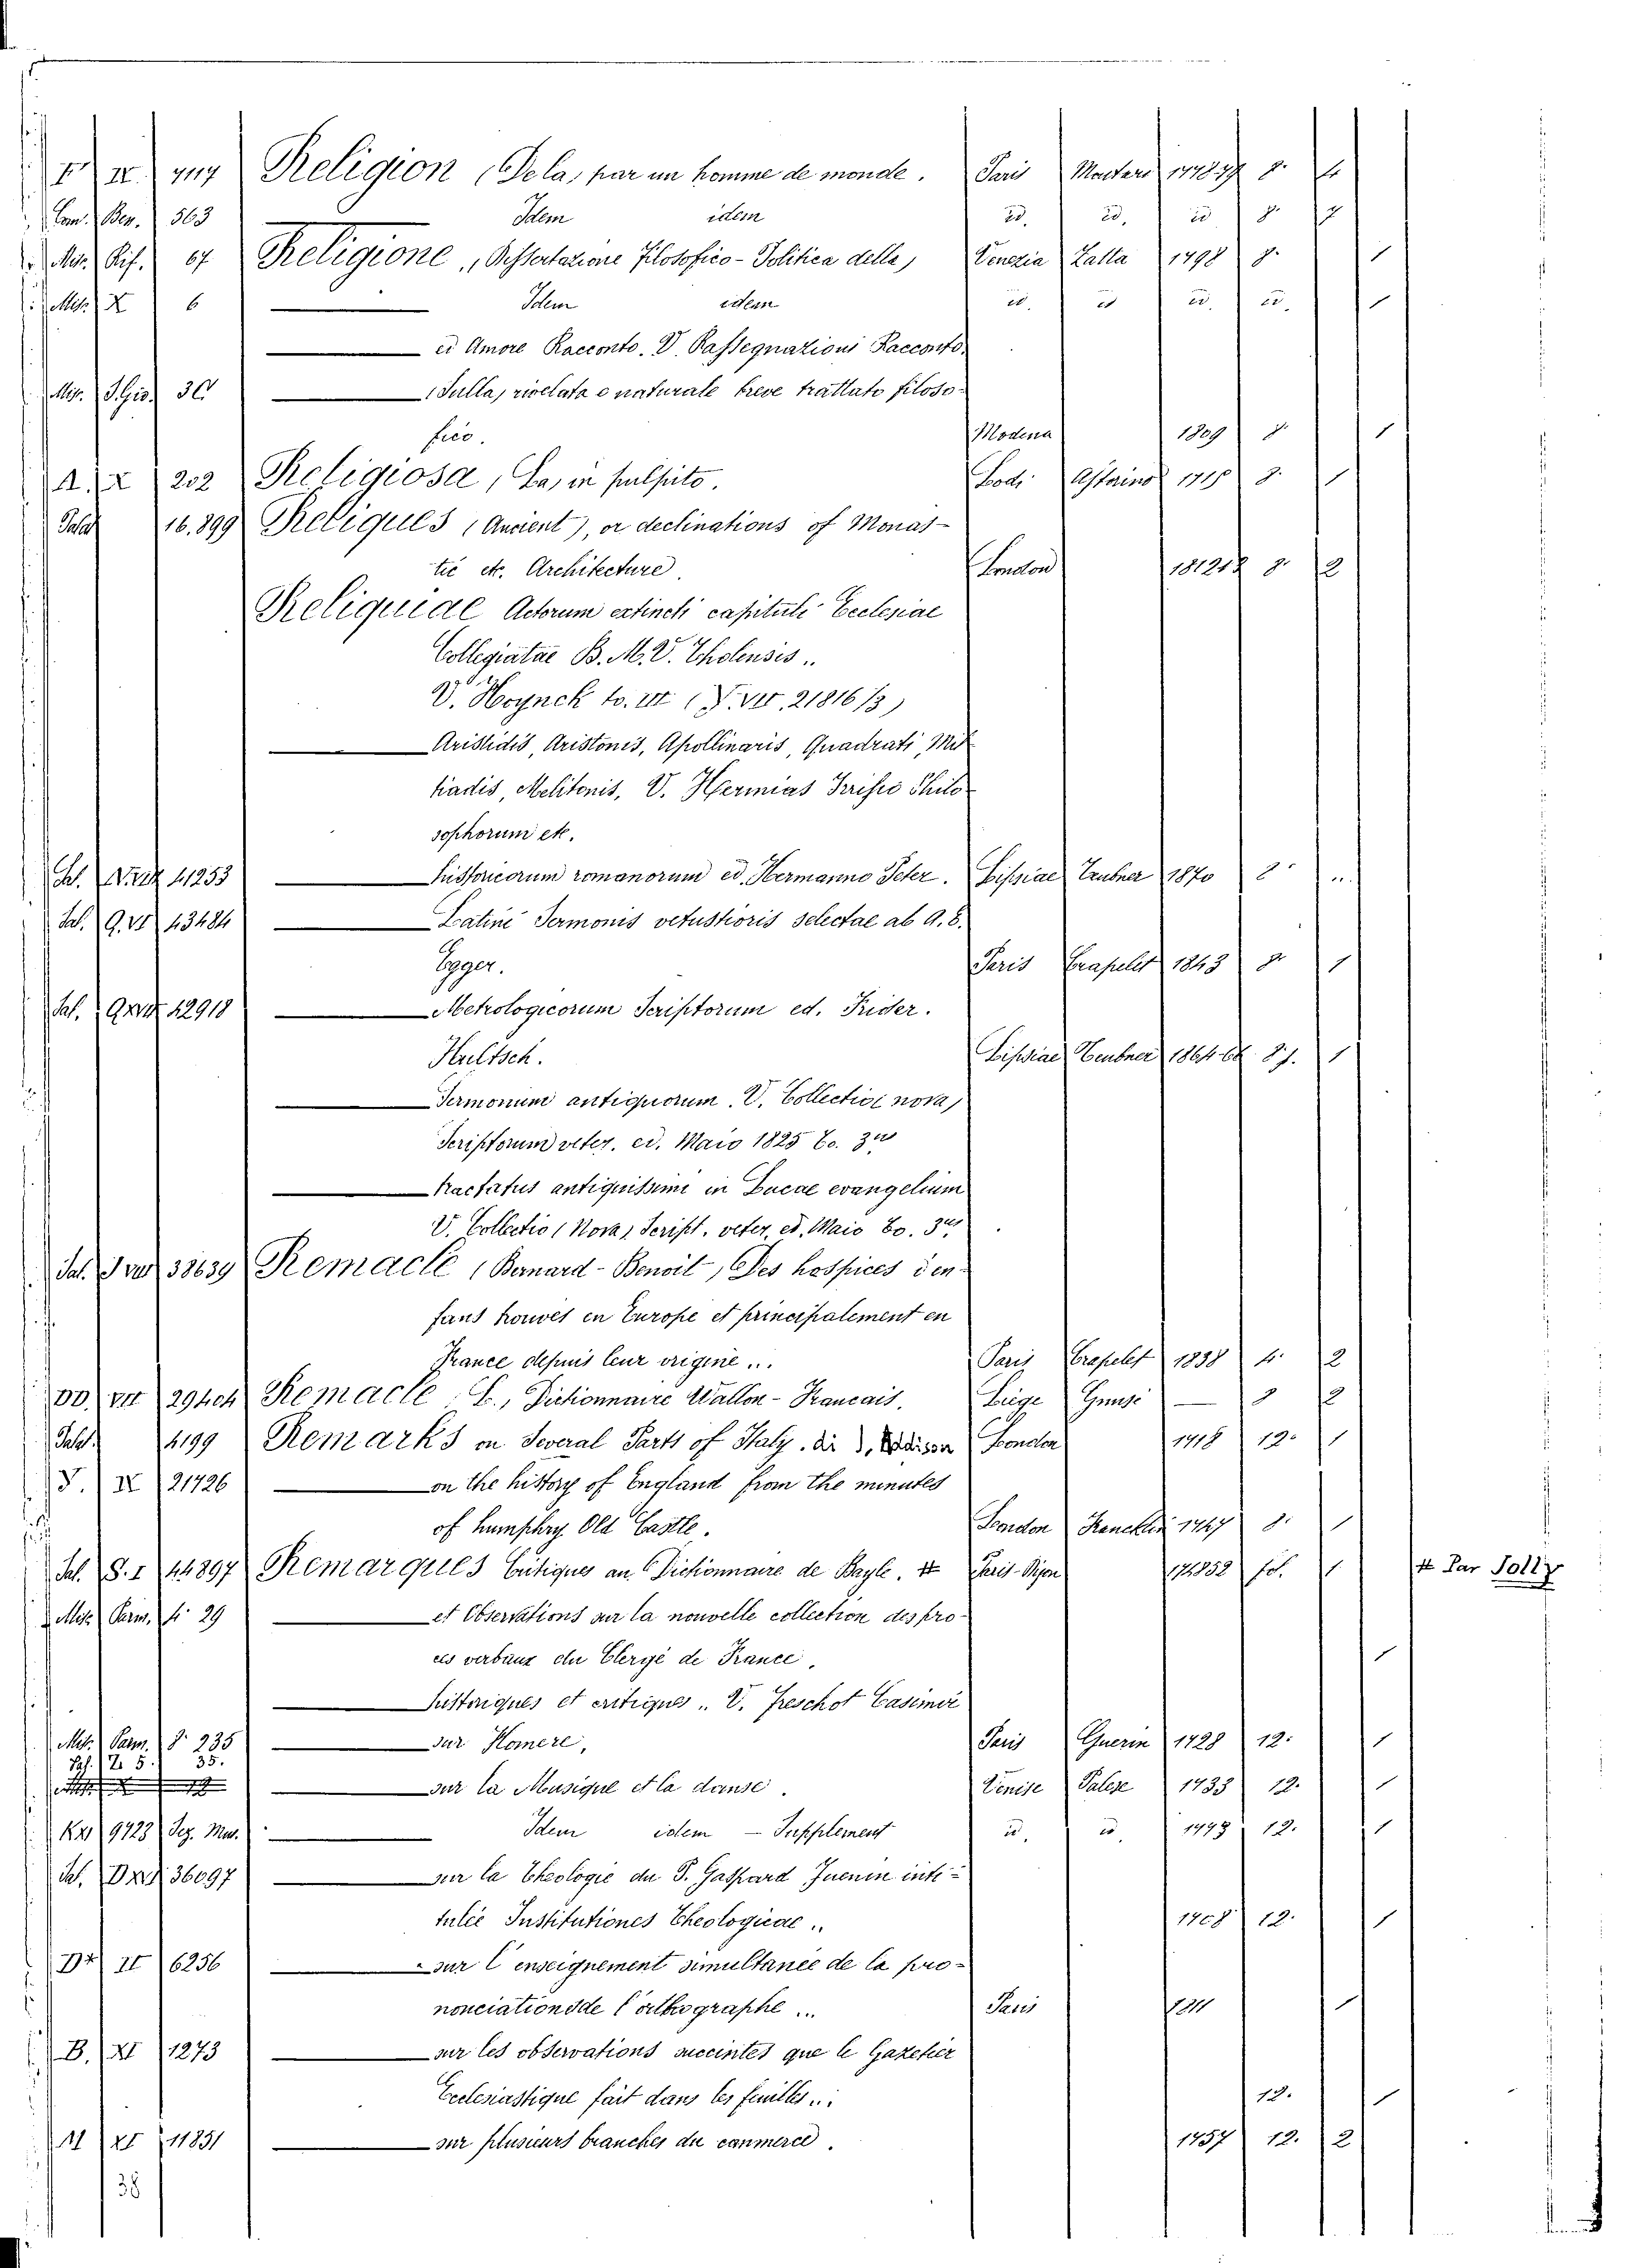 F. IX. 7117 Religion (De la, par un homme de monde. Paris 8.
Com. Ben. 563 Idem idem id. id. id 8. 4
Mis. Rif. 67 Religione, Dissertazione Filosofico-Politica della) Venezia Zatta 1798 8. 1
Mis. X 6 Idem idem id. id id. id. 1
ed Amore Racconto. V. Rassegnazioni Racconto.
Mis. S.Gio. 30 (Sulla, rivelata e naturale breve trattato filoso-
fico. Modena 1809 8. 1
A. X 202 Religiosa, La, in pulpito. Lodi 8. 1
16.899 Reliques (Ancient), or declinations of Monas-
tic etc. Architecture. London 8. 2
Reliquiae Actorum extincti capituli Ecclesiae
Collegiatae B. M. V. Tholensis..
V. Hoynck to. III (Y. VII. 21816/3)
Aristidis, Aristonis, Apollinaris, Quadrati, Mil
tiadis, Melitonis, V. Hermias Irrisio Philo
sophorum etc.
41253 historicorum romanorum ed. Hermanno Peter. Lipsiae Teubner 1870 8
Sal. Q. VI 43484 Latini Sermonis vetustioris selectae ab A. E.
Egger. Paris Crapelet 1843 8. 1
Sal. 42918 Metrologicorum Scriptorum ed. Frider.
Hultsch. Lipsiae Teubner 1864-66 8. 1
Sermonum antiquorum. V. Collectio (nova)
Scriptorum veter. ed. Maio 1825 to. 3
tractatus antiquissimi in Lucae evangelium
V. Collectio (Nova) Script. veter. ed. Maio to. 3
Sal. 38639 Remacle (Bernard-Benoit), Des hospices d'en-
fans trouvés en Europe et principalement en
France depuis leur origine... Paris Crapelet 1838 4. 2
DD. VII 29404 Remacle L., Dictionnaire Wallon-Francais. Liége — 8 2
4199 Remarks on Several Parts of Italy. di J. Addison London 1718 12. 1
Y. IX 21726 on the history of England from the minutes
of humphry Old Castle. London Francklin 1747 8. 1
Sal. S. I 44897 Remarques Critiques au Dictionnaire de Bayle. # Paris-Dijon fol. 1 # Par Jolly
Mis. Parm. fi 29 et Observations sur la nouvelle collection des pro-
cès verbaux du Clergé de France. 1
historiques et critiques.. V. Freschot Casimir
Mis. Parm. 8. 235 sur Homere, Paris Guerin 1728 12. 1
Z. 5. 35. sur la Musique et la danse. Venise Palese 1733 12. 1
9723 Sez. Mus. Idem idem — Supplement id. id. 12. 1
Sal. 36097 sur la Theologie du P. Gaspard Juenin inti-
tulée Institutiones Theologicae.. 1708 12. 1
II 6256 sur l'enseignement simultanée de la pro-
nonciation de l'orthographe... Paris 1
B. XI 1273 sur les observations succintes que le Gazetier
Ecclesiastique fait dans les feuilles... 12. 1
XI 11831 sur plusieurs branches du commerce. 1757 12. 2
38